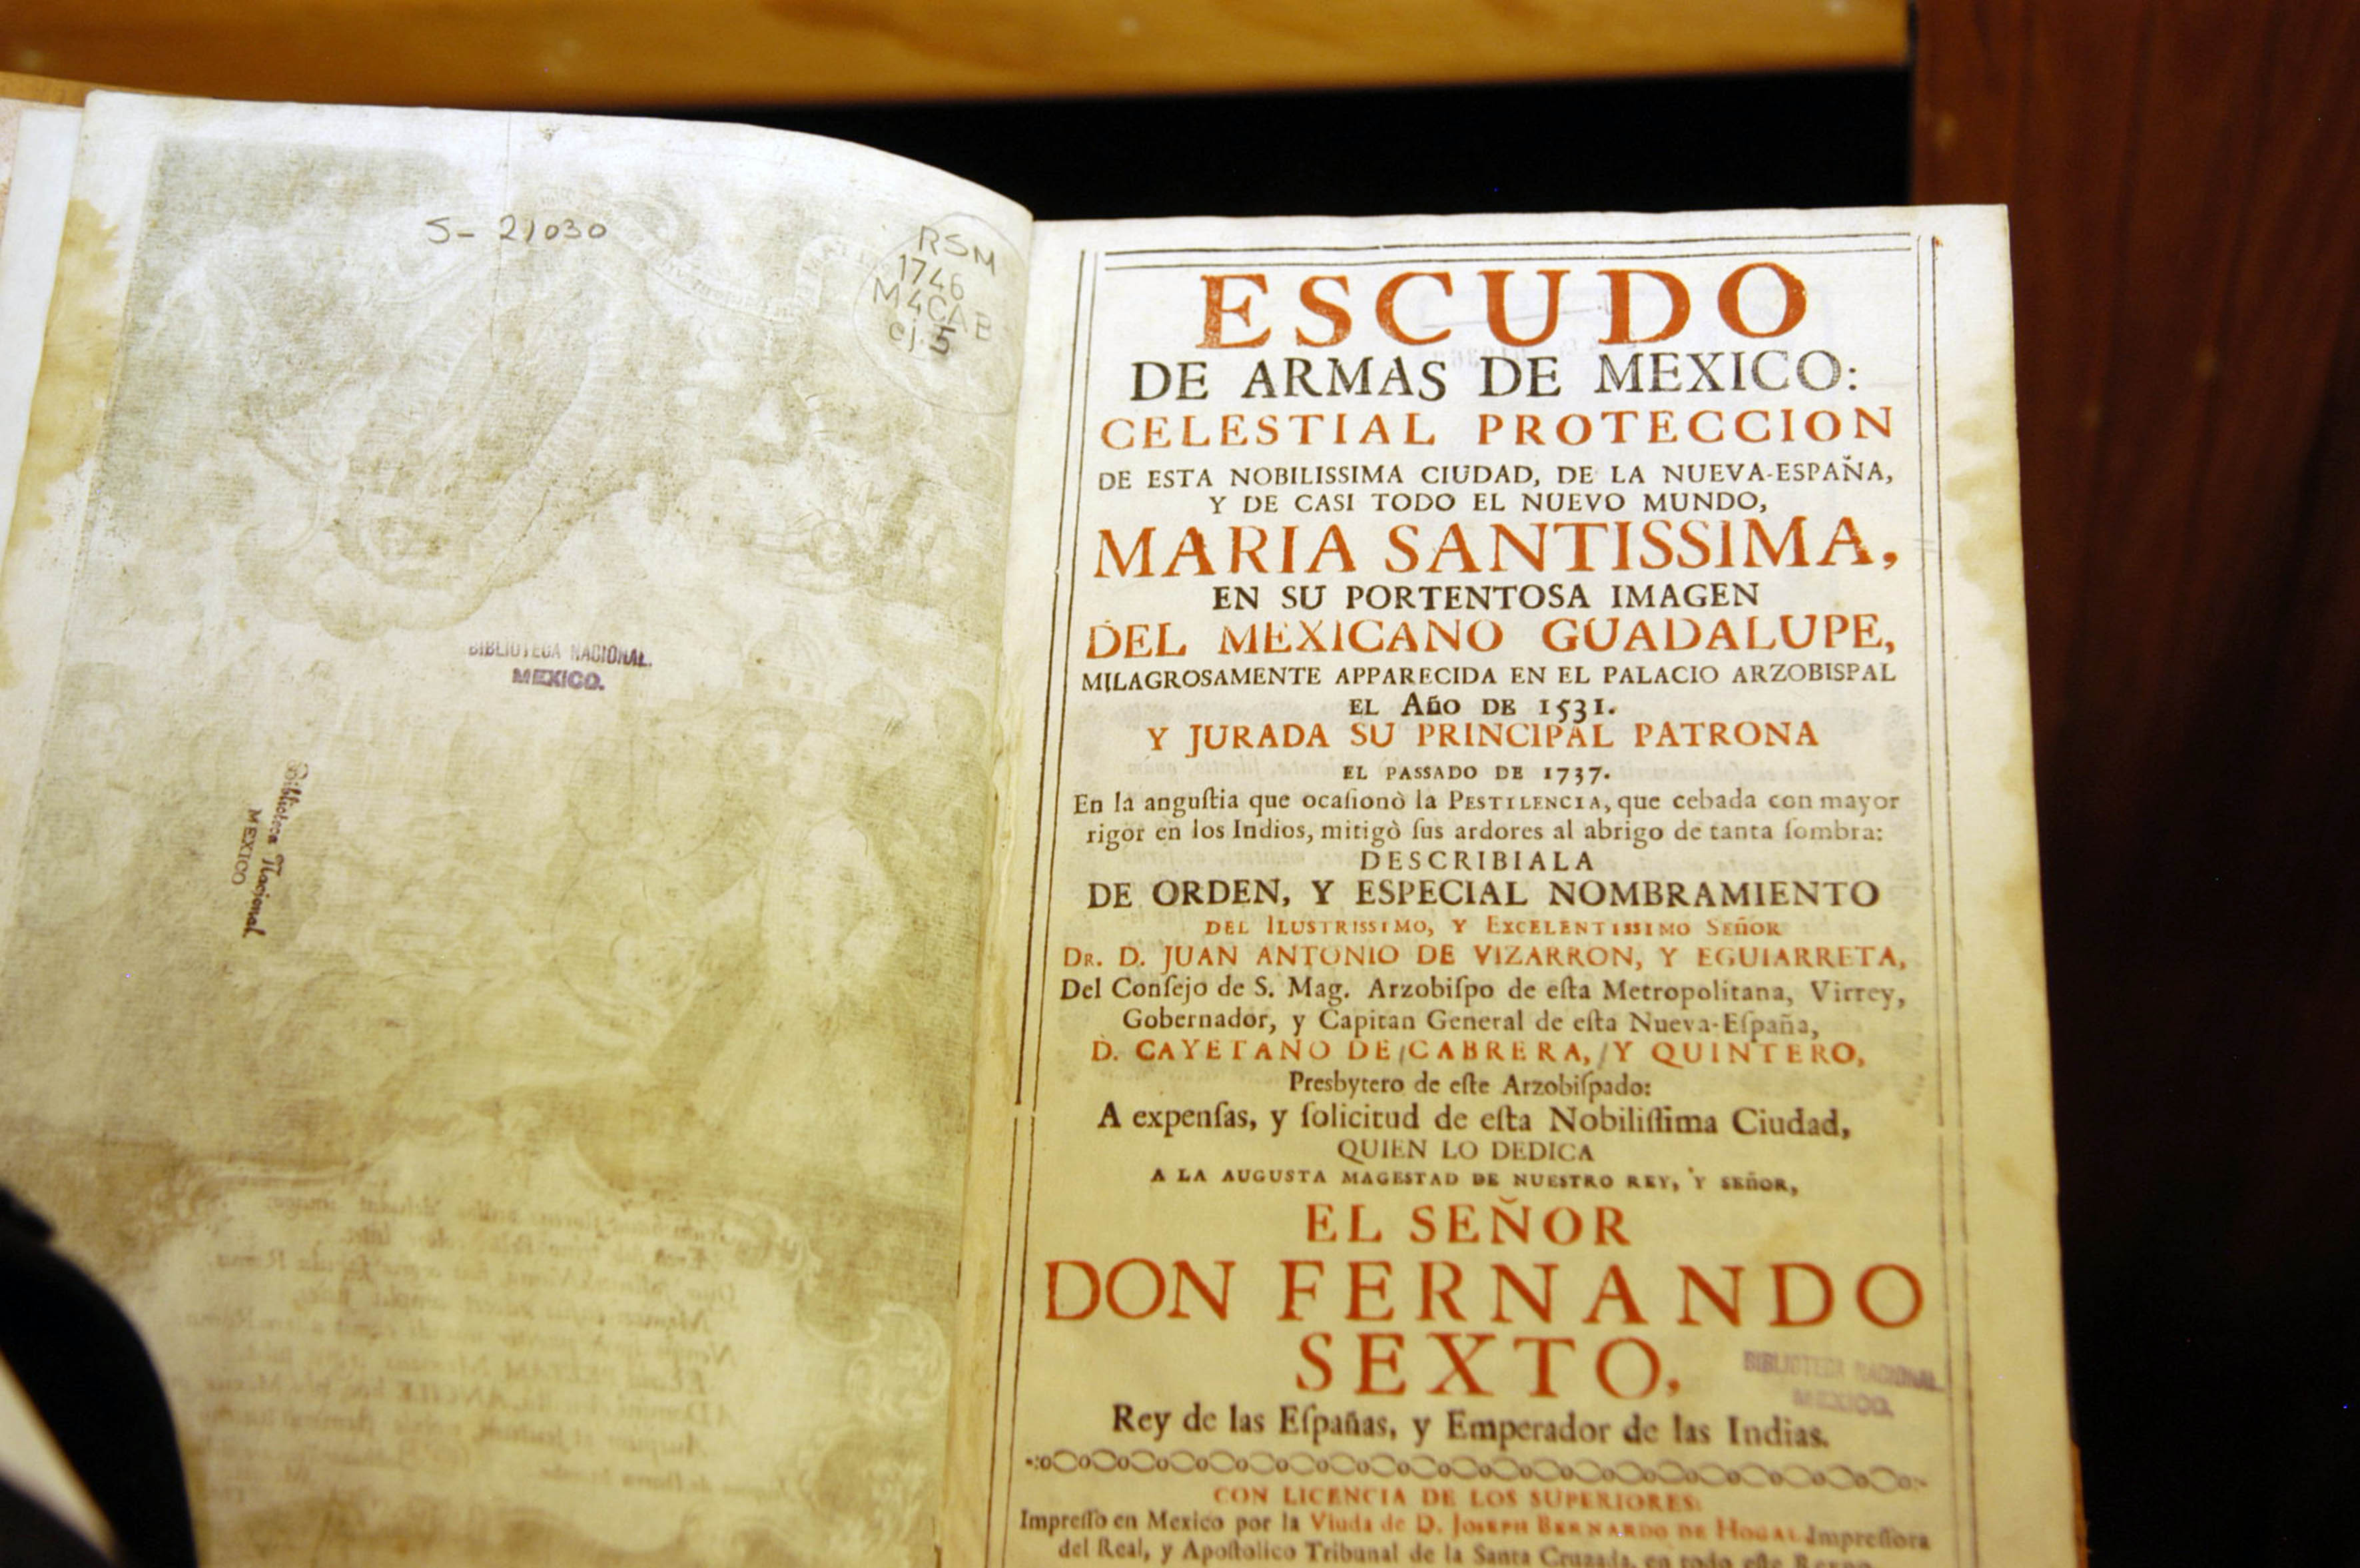 S- 21030
RSM
1746
M4CAB
ej. 5
BIBLIOTECA NACIONAL.
MEXICO.
Biblioteca Nacional
MEXICO
ESCUDO
DE ARMAS DE MEXICO:
CELESTIAL PROTECCION
DE ESTA NOBILISSIMA CIUDAD, DE LA NUEVA-ESPAÑA,
Y DE CASI TODO EL NUEVO MUNDO,
MARIA SANTISSIMA,
EN SU PORTENTOSA IMAGEN
DEL MEXICANO GUADALUPE,
MILAGROSAMENTE APPARECIDA EN EL PALACIO ARZOBISPAL
EL Año DE 1531.
Y JURADA SU PRINCIPAL PATRONA
EL PASSADO DE 1737.
En la anguſtia que ocaſionò la PESTILENCIA, que cebada con mayor
rigor en los Indios, mitigò ſus ardores al abrigo de tanta ſombra:
DESCRIBIALA
DE ORDEN, Y ESPECIAL NOMBRAMIENTO
DEL ILUSTRISSIMO, Y EXCELENTISSIMO SEñOR
DR. D. JUAN ANTONIO DE VIZARRON, Y EGUIARRETA,
Del Conſejo de S. Mag. Arzobiſpo de eſta Metropolitana, Virrey,
Gobernador, y Capitan General de eſta Nueva-Eſpaña,
D. CAYETANO DE CABRERA, Y QUINTERO,
Presbytero de eſte Arzobiſpado:
A expenſas, y ſolicitud de eſta Nobiliſſima Ciudad,
QUIEN LO DEDICA
A LA AUGUSTA MAGESTAD DE NUESTRO REY, Y SEñOR,
EL SEÑOR
DON FERNANDO
SEXTO,
BIBLIOTECA NACIONAL.
MEXICO.
Rey de las Eſpañas, y Emperador de las Indias.
CON LICENCIA DE LOS SUPERIORES:
Impreſſo en Mexico por la Viuda de D. JOSEPH BERNARDO DE HOGAL Impreſſora
del Real, y Apoſtolico Tribunal de la Santa Cruzada, en todo eſte Reyno